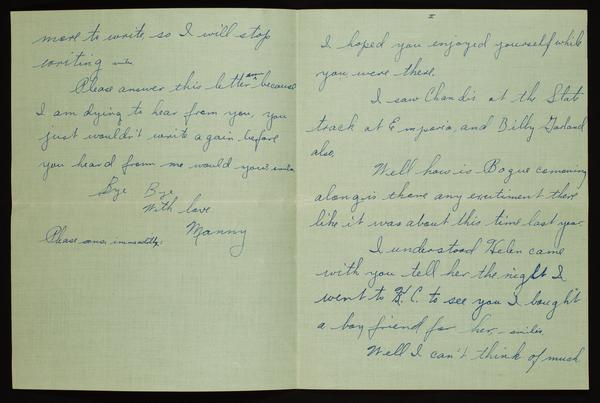 II
I hoped you enjoyed yourself while
you were there.
I saw Chandis at the State
track at Emporia, and Billy Garland
also,
Well how is Bogue comeing
along, is there any excitiment there
like it was about this time last year.
I understood Helen came
with you tell her the night I
went to K.C. to see you I bought
a boy friend for her, - smiles
Well I can't think of much
more to write, so I will stop
writing smiles
Please answer this letter soon because
I am dying to hear from you, you
just wouldn't write again, before
you heard from me would you? smiles
Bye Bye
With love
Manny
Please answer immeaditly: